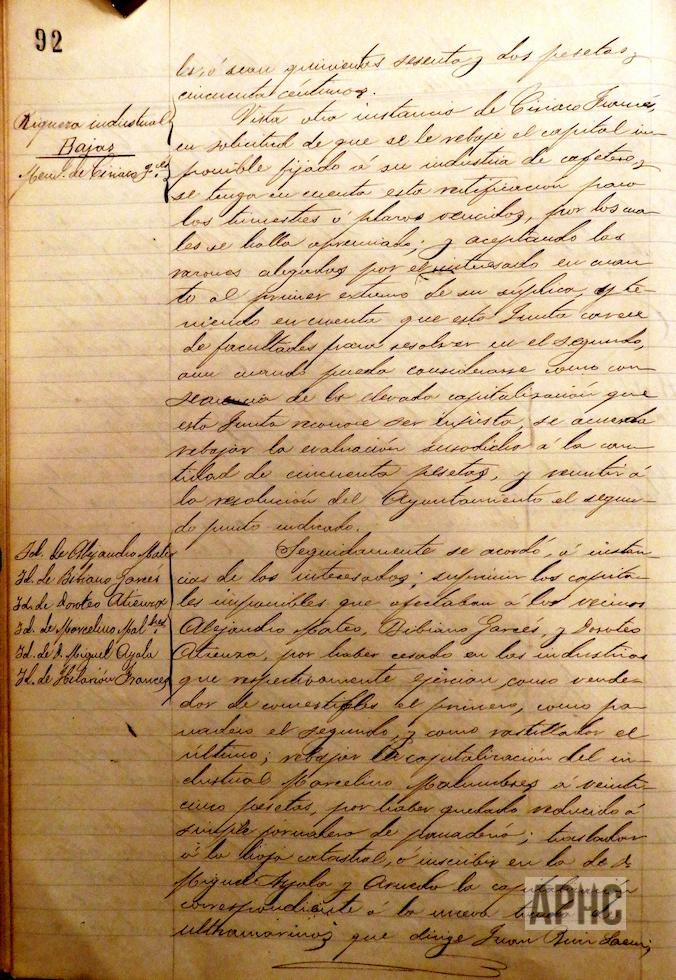 92
les, ó sean quinientas sesenta y dos pesetas,
cincuenta céntimos.
Riqueza industrial
Bajas
de Ciriaco
Vista otra instancia de Ciriaco Francés,
en solicitud de que se le rebaje el capital im-
ponible fijado á su industria de cafetero, y
se tenga en cuenta esta rectificación para
los trimestres ó plazos vencidos, por los cua-
les se halla apremiado; y aceptando las
razones alegadas por el interesado en cuan-
to al primer extremo de su súplica, y te-
niendo en cuenta que esta Junta carece
de facultades para resolver en el segundo,
aun cuando pueda considerarse como con-
secuencia de la elevada capitalización que
esta Junta reconoce ser injusta, se acuerda
rebajar la evaluación susodicha á la can-
tidad de cincuenta pesetas, y remitir á
la resolución del Ayuntamiento el segun-
do punto indicado.
Id. de Alejandro Mateo
Id. de Bibiano Garcés
Id. de Doroteo Atienza
Id. de Marcelino Mal.bres
Id. de D. Miguel Ayala
Id. de Hilarión Francés
Seguidamente se acordó, á instan-
cias de los interesados; suprimir los capita-
les imponibles que afectaban á los vecinos
Alejandro Mateo, Bibiano Garcés, y Doroteo
Atienza, por haber cesado en las industrias
que respectivamente ejercían, como vende-
dor de comestibles el primero, como pa-
nadero el segundo, y como rastillador el
último; rebajar la capitalización del in-
dustrial Marcelino Malumbres á veinti-
cinco pesetas, por haber quedado reducido á
simple jornalero de panadería; trasladar
á la hoja catastral, ó inscribir en la de D.
Miguel Ayala y Arnedo la capitalización
correspondiente á la nueva tienda de
ultramarinos que dirige Juan Ruiz
APHC